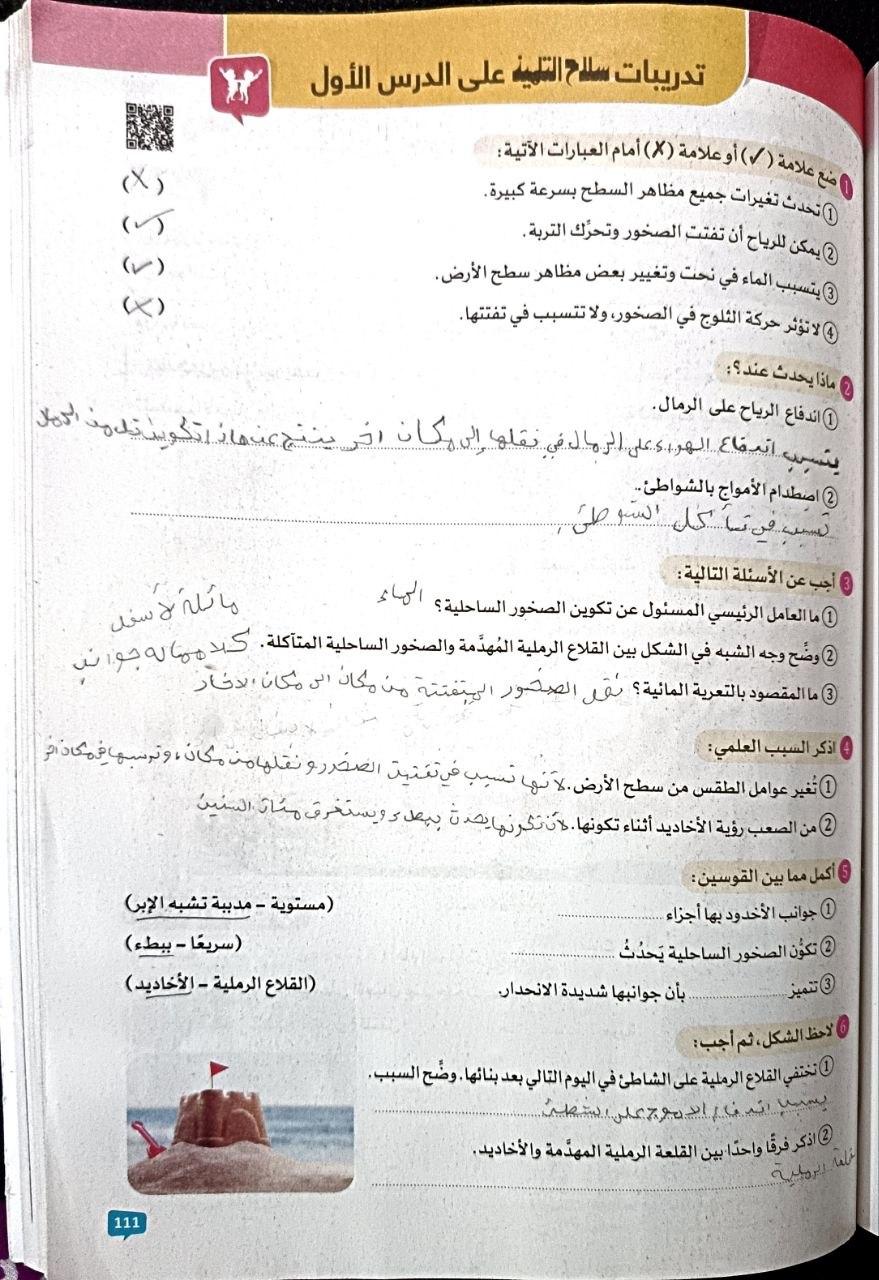 تدريبات سلاح التلميذ على الدرس الأول
1 ضع علامة (✓) أو علامة (✗) أمام العبارات الآتية:
① تحدث تغيرات جميع مظاهر السطح بسرعة كبيرة. (✗)
② يمكن للرياح أن تفتت الصخور وتحرِّك التربة. (✓)
③ يتسبب الماء في نحت وتغيير بعض مظاهر سطح الأرض. (✓)
④ لا تؤثر حركة الثلوج في الصخور، ولا تتسبب في تفتتها. (✗)
2 ماذا يحدث عند؟:
① اندفاع الرياح على الرمال.
يتسبب اندفاع الهواء على الرمال في نقلها إلى مكان اخر ينتج عن هاذا تكوين تل من الرمال
② اصطدام الأمواج بالشواطئ.
تسبب في تأكل الشوطئ
3 أجب عن الأسئلة التالية:
① ما العامل الرئيسي المسئول عن تكوين الصخور الساحلية؟ الماء
② وضِّح وجه الشبه في الشكل بين القلاع الرملية المُهدَّمة والصخور الساحلية المتآكلة. كلاهما له جوانب مائلة لأسفل
③ ما المقصود بالتعرية المائية؟ نقل الصخور المتفتتة من مكان الى مكان الاخر
4 اذكر السبب العلمي:
① تُغير عوامل الطقس من سطح الأرض. لأنها تسبب في تفتيت الصخور و نقلها من مكان، وترسبها في مكان اخر
② من الصعب رؤية الأخاديد أثناء تكونها. لأن تكونها يحدث ببطء ويستغرق مئات السنين
5 أكمل مما بين القوسين:
① جوانب الأخدود بها أجزاء (مستوية – مدببة تشبه الإبر)
② تكوُّن الصخور الساحلية يَحدُثُ (سريعًا – ببطء)
③ تتميز بأن جوانبها شديدة الانحدار. (القلاع الرملية – الأخاديد)
6 لاحظ الشكل، ثم أجب:
① تختفي القلاع الرملية على الشاطئ في اليوم التالي بعد بنائها. وضِّح السبب.
بسبب اندفاع الاموج على الشطئ
② اذكر فرقًا واحدًا بين القلعة الرملية المهدَّمة والأخاديد.
الرملية
111